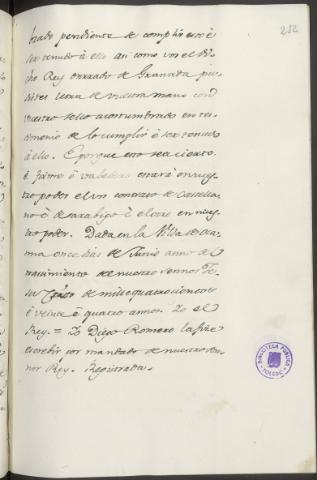 212
trado pendiente de complir esto è
ser tenudo à ello asi como vos el di-
cho Rey onrrado de Granada pu-
sistes letra de vuestra mano con
vuestro sello acostumbrado en tes-
timonio de lo cumplir è ser tenudo
à ello. E porque esto sea cierto
è firme è valedero estarà en vues-
tro poder el un contrato de castella-
no è de arabigo è el otro en nues-
tro poder. Dada en la Villa de
ma once dias de Junio anno del
nacimiento de nuestro Sennor Je-
su Christo de mil è quatrocientos
è veinte è quatro annos. Yo el
Rey. = Yo Diego Romero la fice
escrebir por mandado de nuestro Sen-
nor Rey. Registrada.
BIBLIOTECA PUBLICA
TOLEDO